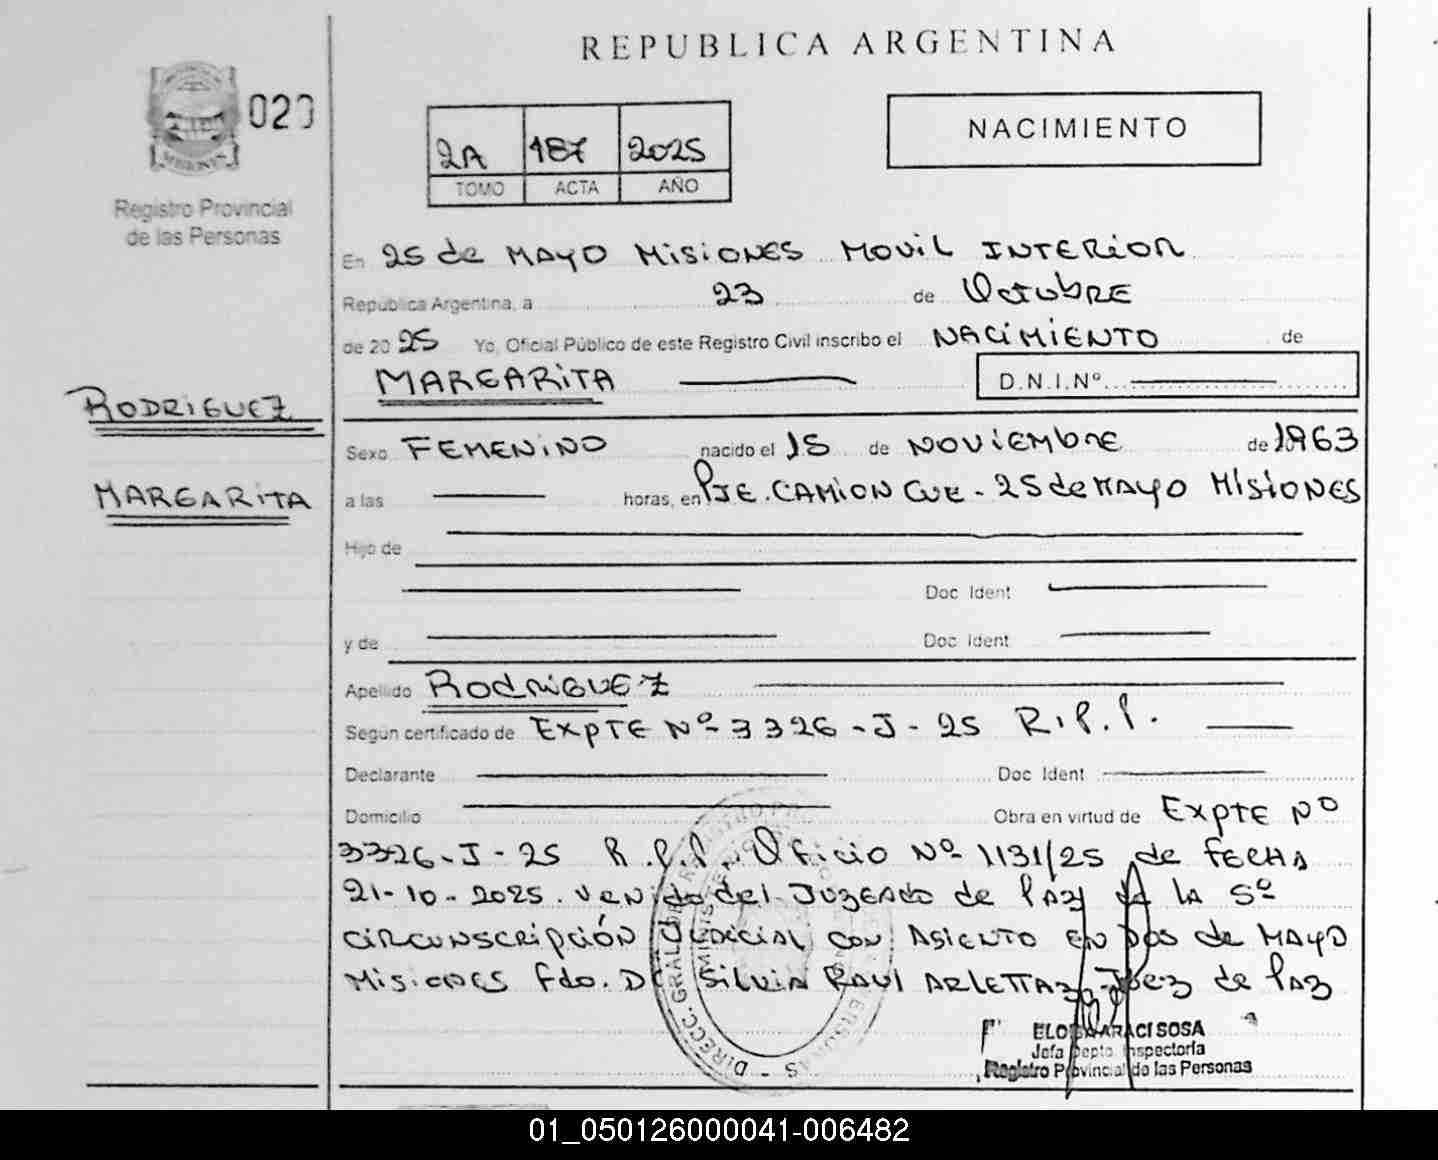 REPUBLICA ARGENTINA
020
NACIMIENTO
2A 187 2025
TOMO ACTA AÑO
MISIONES
Registro Provincial
de las Personas
En 25 de MAYO MISIONES MOVIL INTERIOR
Republica Argentina, a 23 de Octubre
de 20 25 Yo, Oficial Público de este Registro Civil inscribo el NACIMIENTO de
MARGARITA
D.N.I.Nº
RODRIGUEZ
MARGARITA
Sexo FEMENINO nacido el 15 de NOVIEMBRE de 1963
a las horas, en PJE. CAMION CUE - 25 de MAYO MISIONES
Hijo de
Doc Ident
y de Doc Ident
Apellido RODRIGUEZ
Según certificado de EXPTE Nº 3326-J-25 R.P.P.
Declarante Doc Ident
Domicilio Obra en virtud de EXPTE Nº
3326-J-25 R.P.P. Oficio Nº 1131/25 de FECHA
21-10-2025. venido del JUZGADO de PAZ de LA 5º
CIRCUNSCRIPCIÓN JUDICIAL CON ASIENTO EN DOS de MAYO
MISIONES Fdo. SILVIA RAUL Juez de PAZ
ELOISA ARACI SOSA
Jefa Depto. Inspectoria
Registro Provincial de las Personas
01_050126000041-006482